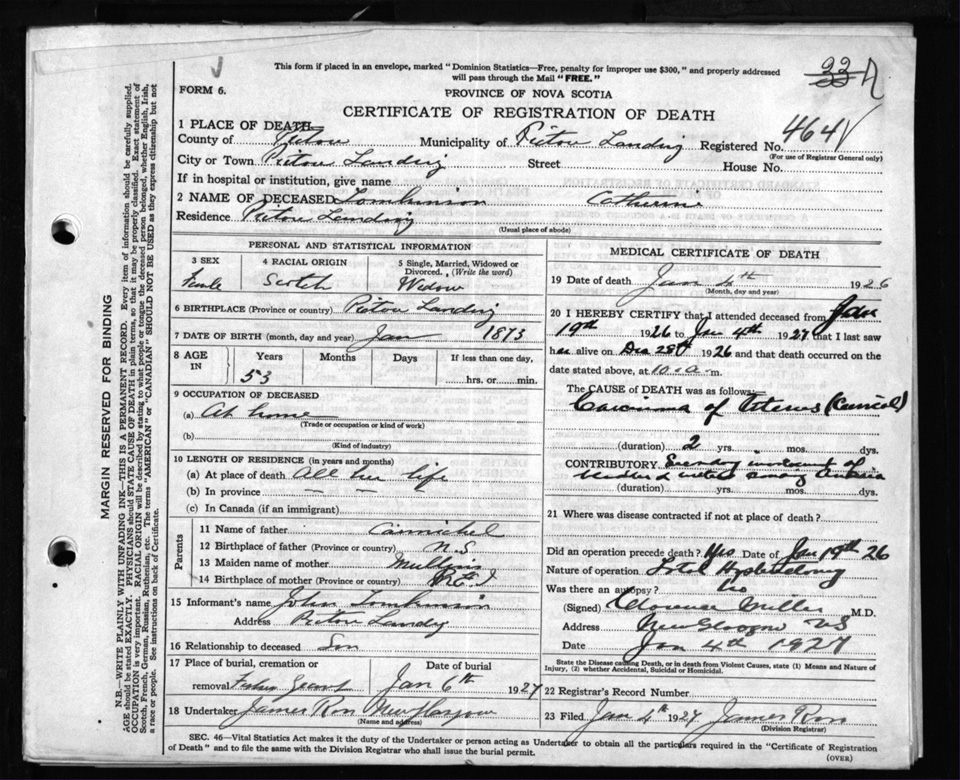 This form if placed in an envelope, marked "Dominion Statistics—Free, penalty for improper use $300," and properly addressed
will pass through the Mail "FREE."
FORM 6.
PROVINCE OF NOVA SCOTIA
CERTIFICATE OF REGISTRATION OF DEATH
1 PLACE OF DEATH
County of Pictou Municipality of Pictou Landing Registered No. 464
(For use of Registrar General only)
City or Town Pictou Landing Street House No.
If in hospital or institution, give name
2 NAME OF DECEASED Tomkinson Catherine
Residence Pictou Landing
(Usual place of abode)
MARGIN RESERVED FOR BINDING
N.B.—WRITE PLAINLY WITH UNFADING INK—THIS IS A PERMANENT RECORD. Every item of information should be carefully supplied.
AGE should be stated EXACTLY. PHYSICIANS should STATE CAUSE OF DEATH in plain terms, so that it may be properly classified. Exact statement of
OCCUPATION is very important. RACIAL ORIGIN will be described by stating to what people or tongue the deceased person belonged, whether English, Irish,
Scotch, French, German, Russian, Ruthenian, etc. The terms "AMERICAN" or "CANADIAN" SHOULD NOT BE USED as they express citizenship but not
a race or people. See instructions on back of Certificate.
PERSONAL AND STATISTICAL INFORMATION
3 SEX
Female
4 RACIAL ORIGIN
Scotch
5 Single, Married, Widowed or
Divorced. (Write the word)
Widow
6 BIRTHPLACE (Province or country) Pictou Landing
7 DATE OF BIRTH (month, day and year) Jan 1873
8 AGE IN Years Months Days If less than one day,
53 hrs. or min.
9 OCCUPATION OF DECEASED
(a) At home
(Trade or occupation or kind of work)
(b)
(Kind of industry)
10 LENGTH OF RESIDENCE (in years and months)
(a) At place of death All her life
(b) In province — — —
(c) In Canada (if an immigrant)
Parents
11 Name of father Carmichel
12 Birthplace of father (Province or country) N.S
13 Maiden name of mother
14 Birthplace of mother (Province or country)
15 Informant's name John Tomkinson
Address Pictou Landing
16 Relationship to deceased Son
17 Place of burial, cremation or Date of burial
removal Jan 6th 1927
18 Undertaker James Ross New Glasgow
(Name and address)
MEDICAL CERTIFICATE OF DEATH
19 Date of death Jan 4th 1926
(Month, day and year)
20 I HEREBY CERTIFY that I attended deceased from Jan
19th 1926 to Jan 4th 1927 that I last saw
her alive on Dec 25th 1926 and that death occurred on the
date stated above, at 10 a.m.
The CAUSE OF DEATH was as follows:
Carcinoma of Uterus (Cervical)
(duration) 2 yrs. mos. dys.
CONTRIBUTORY Secondary involvement of
(duration) yrs. mos. dys.
21 Where was disease contracted if not at place of death?
Did an operation precede death? Yes Date of Jan 19th 26
Nature of operation Total Hysterectomy
Was there an autopsy? No
(Signed) Clarence Miller M.D.
Address New Glasgow NS
Date Jan 4th 1927
State the Disease causing Death, or in death from Violent Causes, state (1) Means and Nature of
Injury, (2) whether Accidental, Suicidal or Homicidal.
22 Registrar's Record Number
23 Filed Jan 4th 1927 James Ross
(Division Registrar)
SEC. 46—Vital Statistics Act makes it the duty of the Undertaker or person acting as Undertaker to obtain all the particulars required in the "Certificate of Registration
of Death" and to file the same with the Division Registrar who shall issue the burial permit.
(OVER)